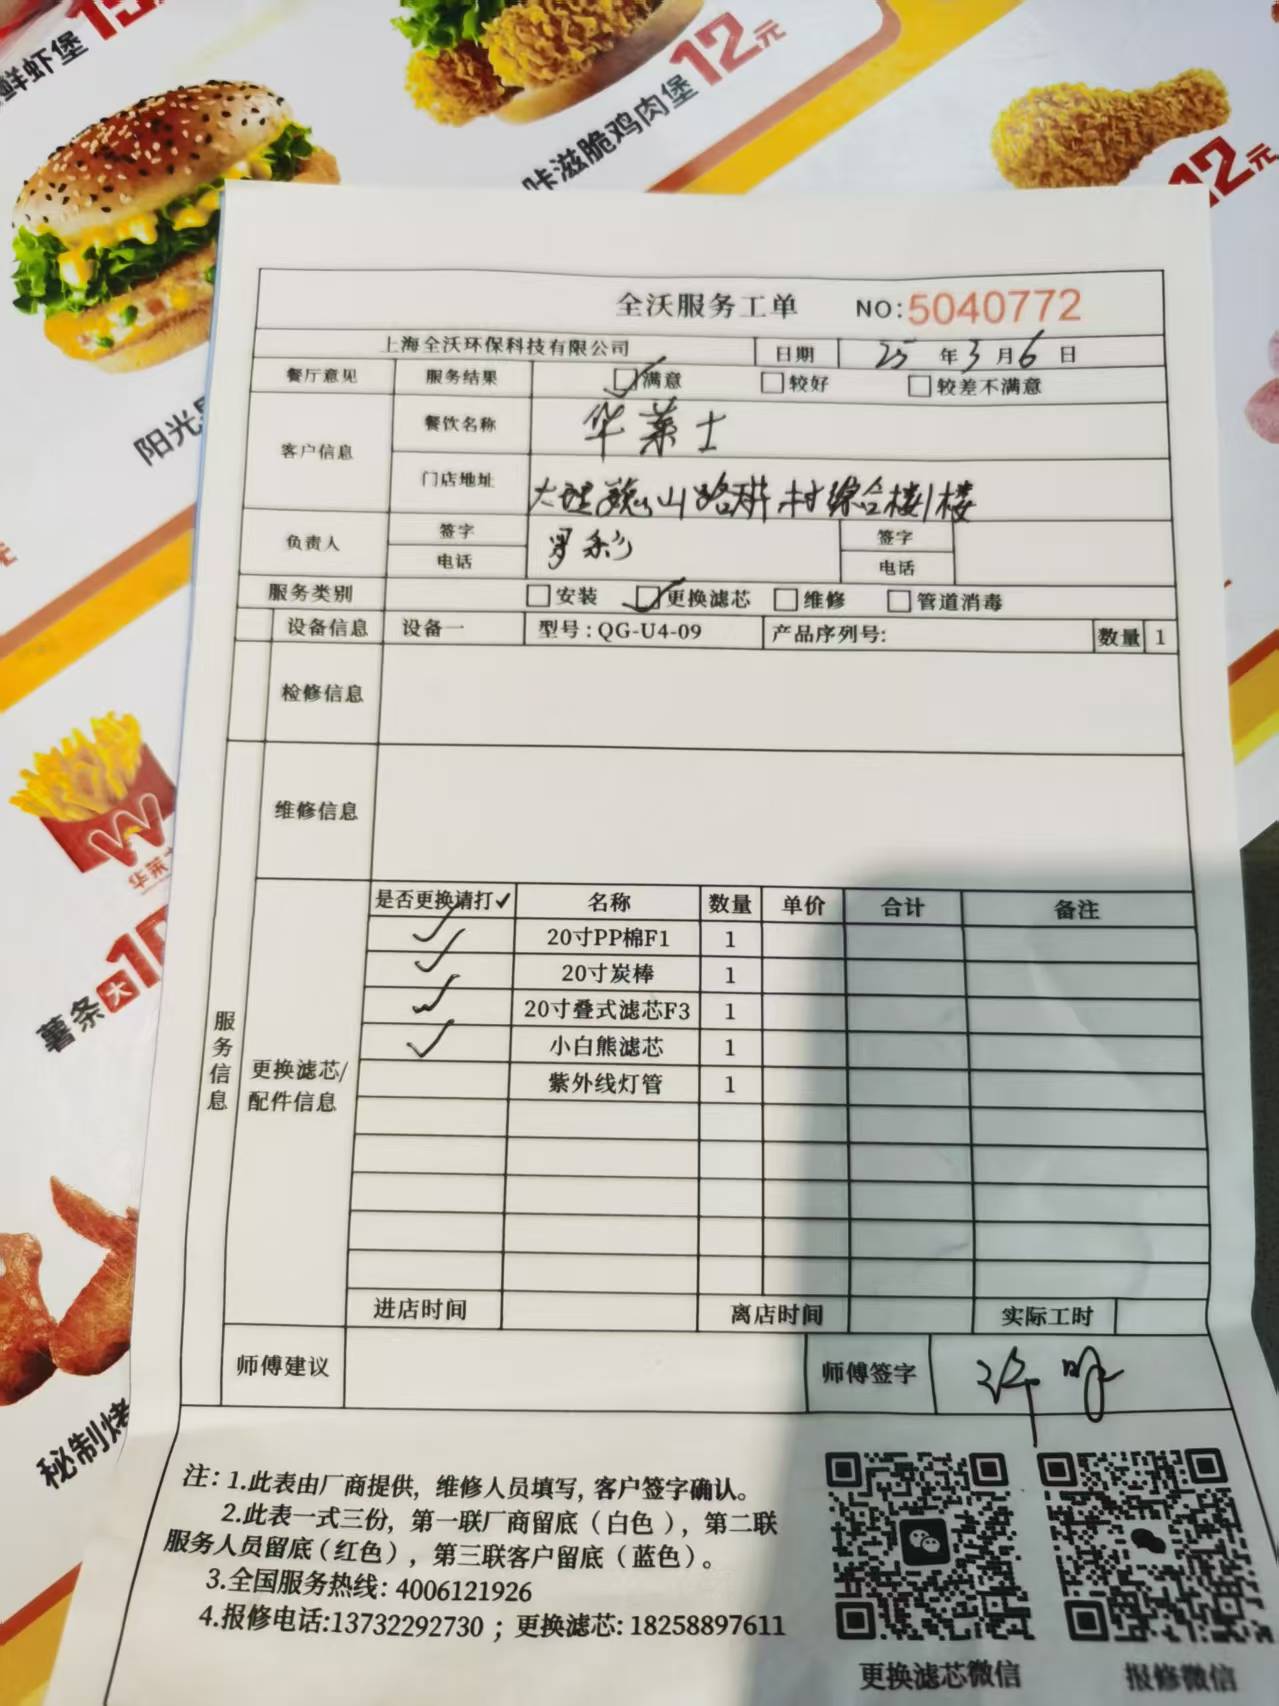 鲜虾堡
咔滋脆鸡肉堡 12元
12元
阳光
全沃服务工单 NO:5040772
上海全沃环保科技有限公司 日期 25年3月6日
餐厅意见 服务结果 ☑满意 □较好 □较差不满意
客户信息 餐饮名称 华莱士
门店地址 大理巍山路 村综合楼1楼
负责人 签字 罗彩 签字
电话 电话
服务类别 □安装 ☑更换滤芯 □维修 □管道消毒
设备信息 设备一 型号:QG-U4-09 产品序列号: 数量 1
检修信息
维修信息
服务信息
更换滤芯/
配件信息
是否更换请打✓ 名称 数量 单价 合计 备注
✓ 20寸PP棉F1 1
✓ 20寸炭棒 1
✓ 20寸叠式滤芯F3 1
✓ 小白熊滤芯 1
紫外线灯管 1
进店时间 离店时间 实际工时
师傅建议 师傅签字
注: 1.此表由厂商提供, 维修人员填写, 客户签字确认。
2.此表一式三份, 第一联厂商留底（白色）, 第二联
服务人员留底(红色）, 第三联客户留底（蓝色）。
3.全国服务热线: 4006121926
4.报修电话:13732292730 ; 更换滤芯: 18258897611
更换滤芯微信 报修微信
薯条 大
秘制烤